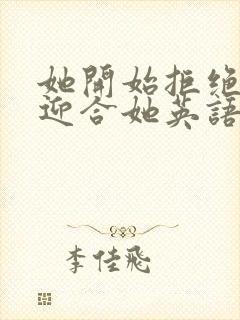 她開始拒絕
迎合她英語
李佳飛